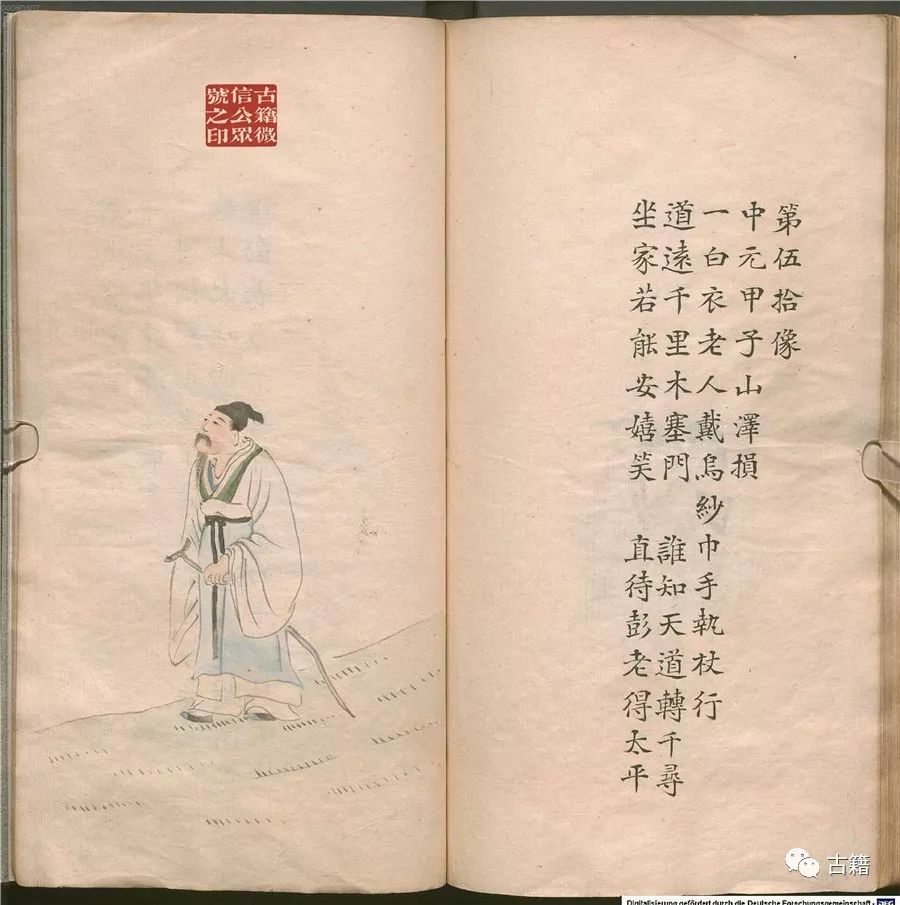 第伍拾像
中元甲子山澤損
一白衣老人戴烏紗巾手執杖行
道遠千里木塞門 誰知天道轉千尋
坐家若能安嬉笑 直待彭老得太平
古籍微
信公眾
號之印
古籍
Digitalisierung gefördert durch die Deutsche Forschungsgemeinschaft